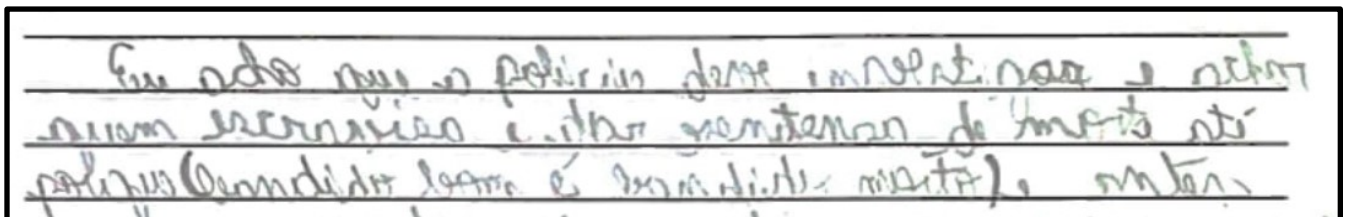 Eu acho que a polícia deve investigar e achar
quem escreveu e dar sentensa de morte até
porque (bandido bom é bandido morto), então